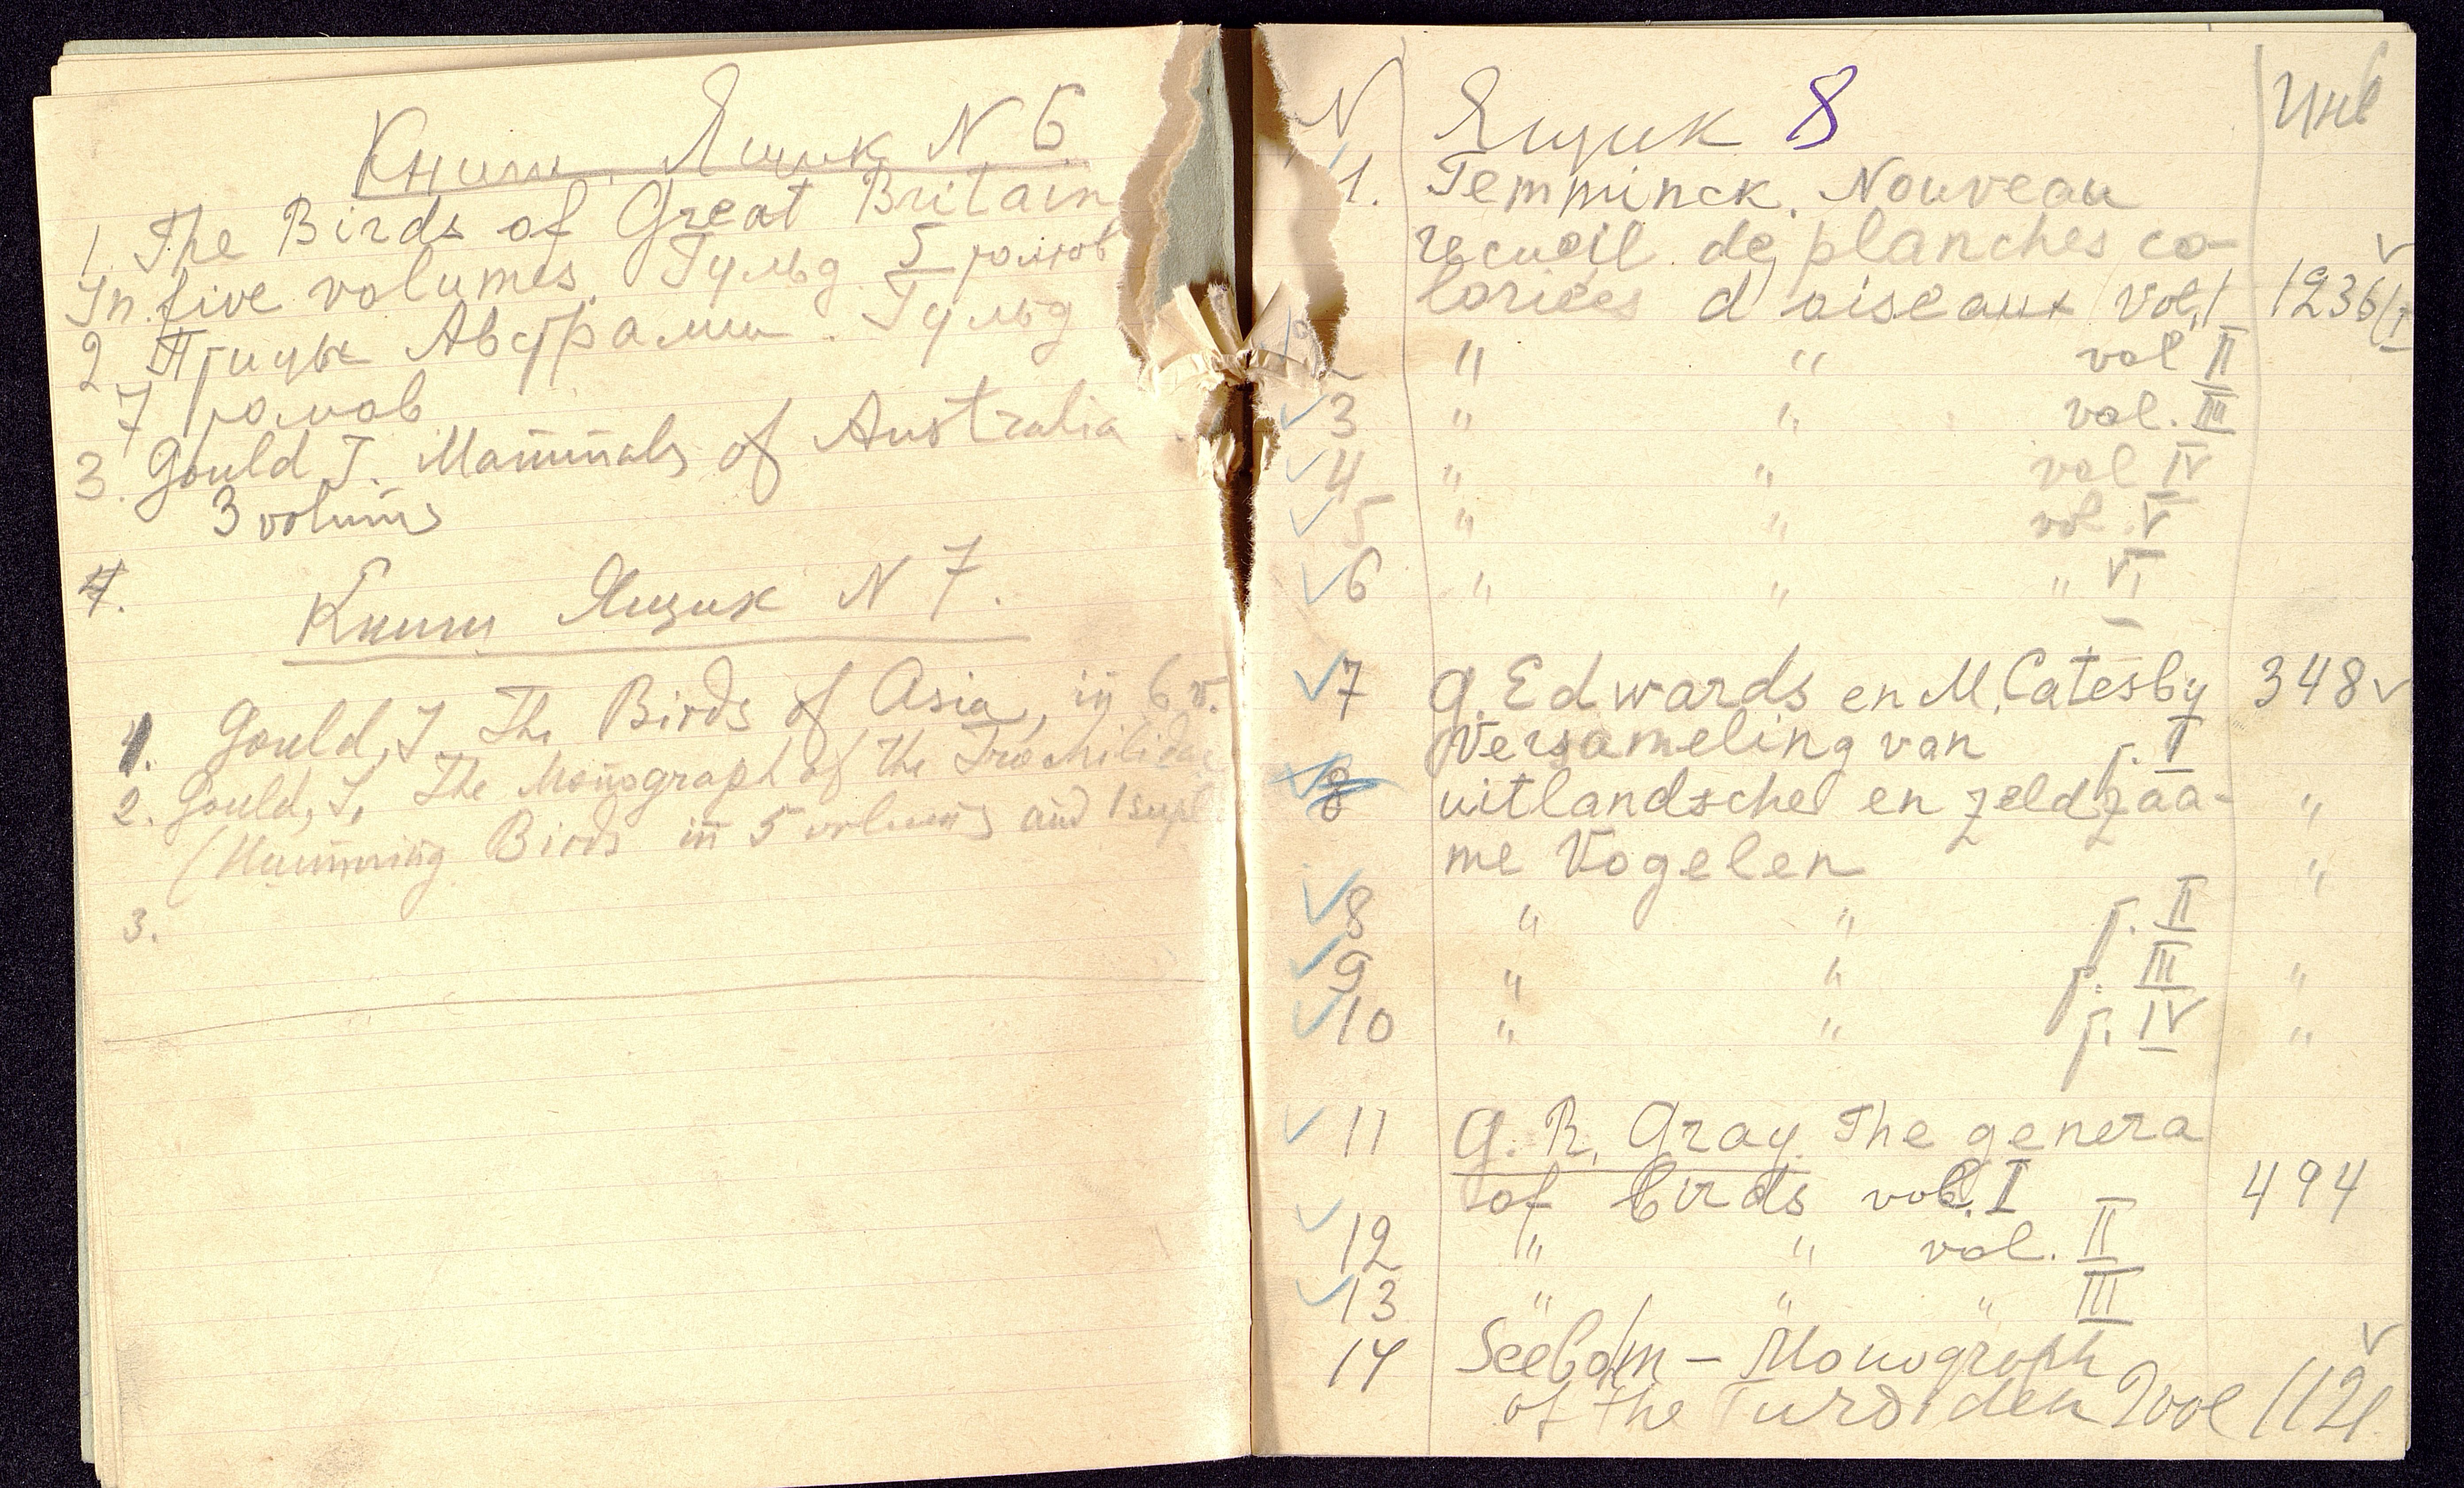 Книги. Ящик N 6.
1. The Birds of Great Britain
In five volumes. Гульд 5 томов
2 Птицы Австралии. Гульд
7 томов
3. Gould J. Mammals of Australia
3 volums
4.
Книги Ящик N 7.
1. Gould, J. The Birds of Asia, in 6 v.
2. Gould, J. The Monograph of the Trochilidae
(Humming Birds in 5 volums and 1 supl
3.
N Ящик 8 Инв
1. Temminck. Nouveau
recueil de planches co-
loriées d'oiseaux vol. I 1236/I v
2 " " vol II
3 " " vol. III
4 " " vol IV
5 " " vol. V
6 " " " VI
7 G. Edwards en M. Catesby 348 v
Versameling van p. I
8 uitlandsche en zeldzaa- "
me Vogelen "
8 " " p. II
9 " " p. III "
10 " " p. IV "
11 G. R. Gray. The genera
of birds vol. I 494
12 " " vol. II
13 " " " III
14 Seebohm - Monograph v
of the Turdiden 2 vol 1121